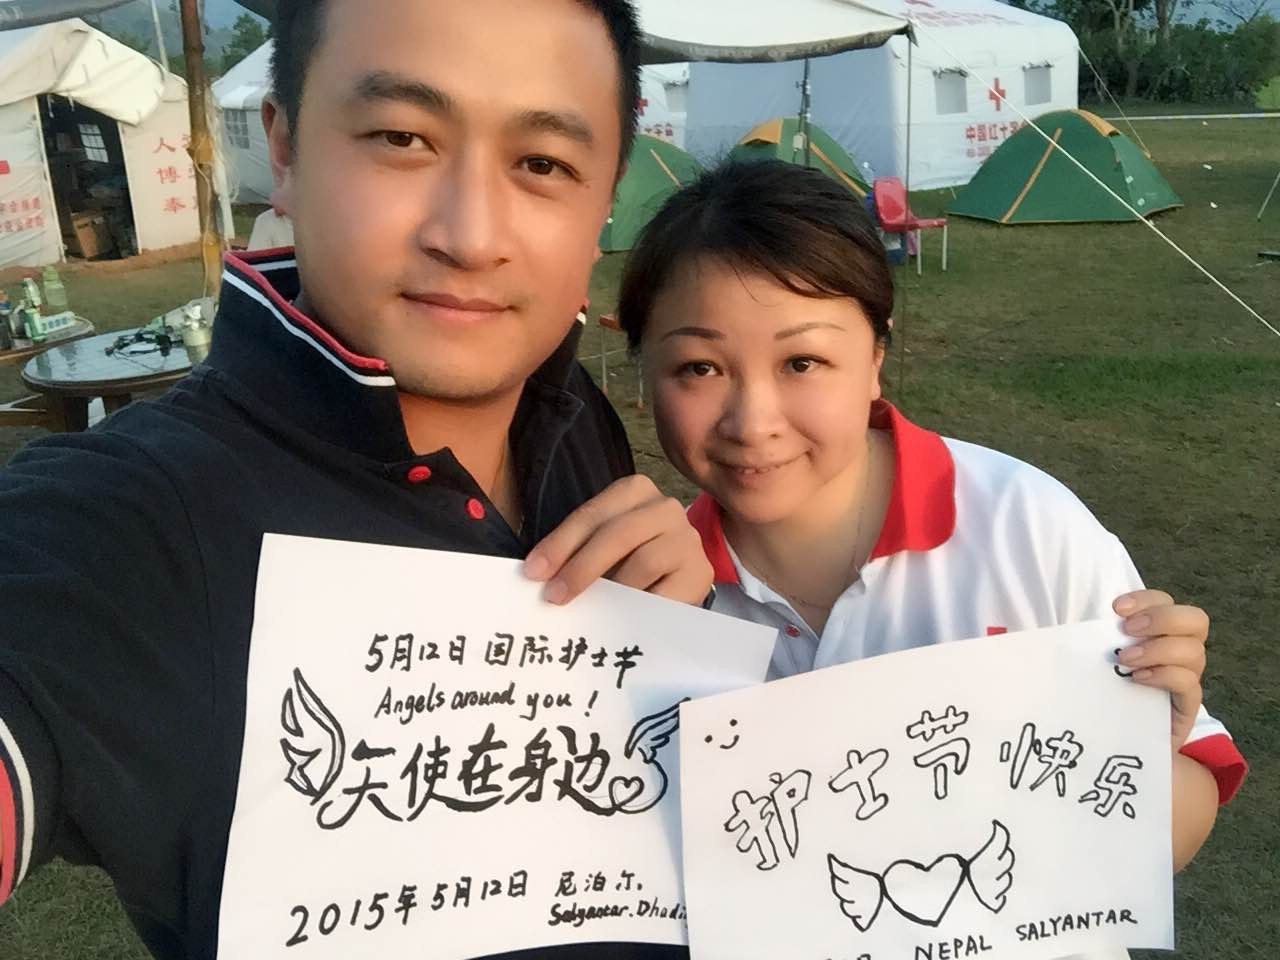 人
博
奉
中国红十字
5月12日 国际护士节
Angels around you!
天使在身边
2015年5月12日 尼泊尔.
Salyantar. Dhadi
护士节快乐
NEPAL SALYANTAR